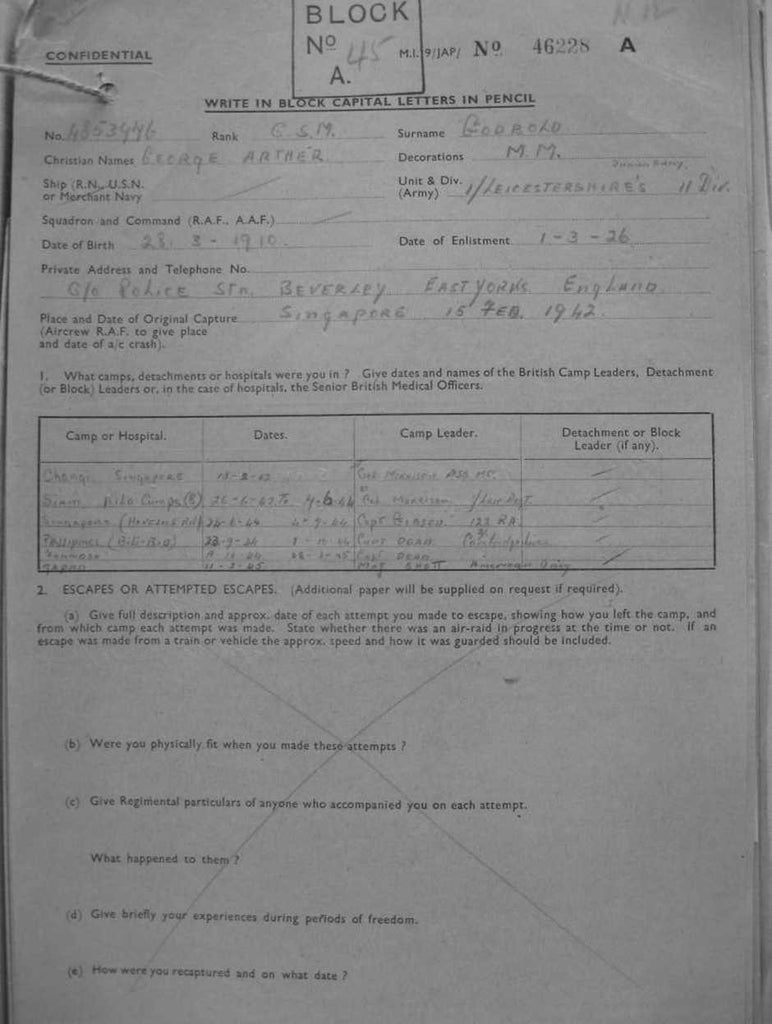 BLOCK
Nº 45 M.I.9/JAP/ Nº 46228 A
CONFIDENTIAL
A.
WRITE IN BLOCK CAPITAL LETTERS IN PENCIL
No. 4853446 Rank C.S.M. Surname GODBOLD
Christian Names GEORGE ARTHER Decorations M.M.
Ship (R.N., U.S.N. or Merchant Navy Unit & Div. (Army) 1/LEICESTERSHIRE'S 11 DIV.
Squadron and Command (R.A.F., A.A.F.)
Date of Birth 28. 3 - 1910. Date of Enlistment 1 - 3 - 26
Private Address and Telephone No.
C/o POLICE STN. BEVERLEY EAST YORKS. ENGLAND
Place and Date of Original Capture SINGAPORE 15 FEB. 1942.
(Aircrew R.A.F. to give place
and date of a/c crash).
1. What camps, detachments or hospitals were you in ? Give dates and names of the British Camp Leaders, Detachment
(or Block) Leaders or, in the case of hospitals, the Senior British Medical Officers.
Camp or Hospital. Dates. Camp Leader. Detachment or Block
Leader (if any).
Changi SINGAPORE Col MORRISON DSO MC.
SIAM Camps (8) 4-6-44 Col MORRISON
SINGAPORE 24-6-44 4-9-44 CAPT GIBSON 122 RA
23-9-44 CAPT DEAN
FORMOSA CAPT DEAN
JAPAN
2. ESCAPES OR ATTEMPTED ESCAPES. (Additional paper will be supplied on request if required).
(a) Give full description and approx. date of each attempt you made to escape, showing how you left the camp, and
from which camp each attempt was made. State whether there was an air-raid in progress at the time or not. If an
escape was made from a train or vehicle the approx. speed and how it was guarded should be included.
(b) Were you physically fit when you made these attempts ?
(c) Give Regimental particulars of anyone who accompanied you on each attempt.
What happened to them ?
(d) Give briefly your experiences during periods of freedom.
(e) How were you recaptured and on what date ?